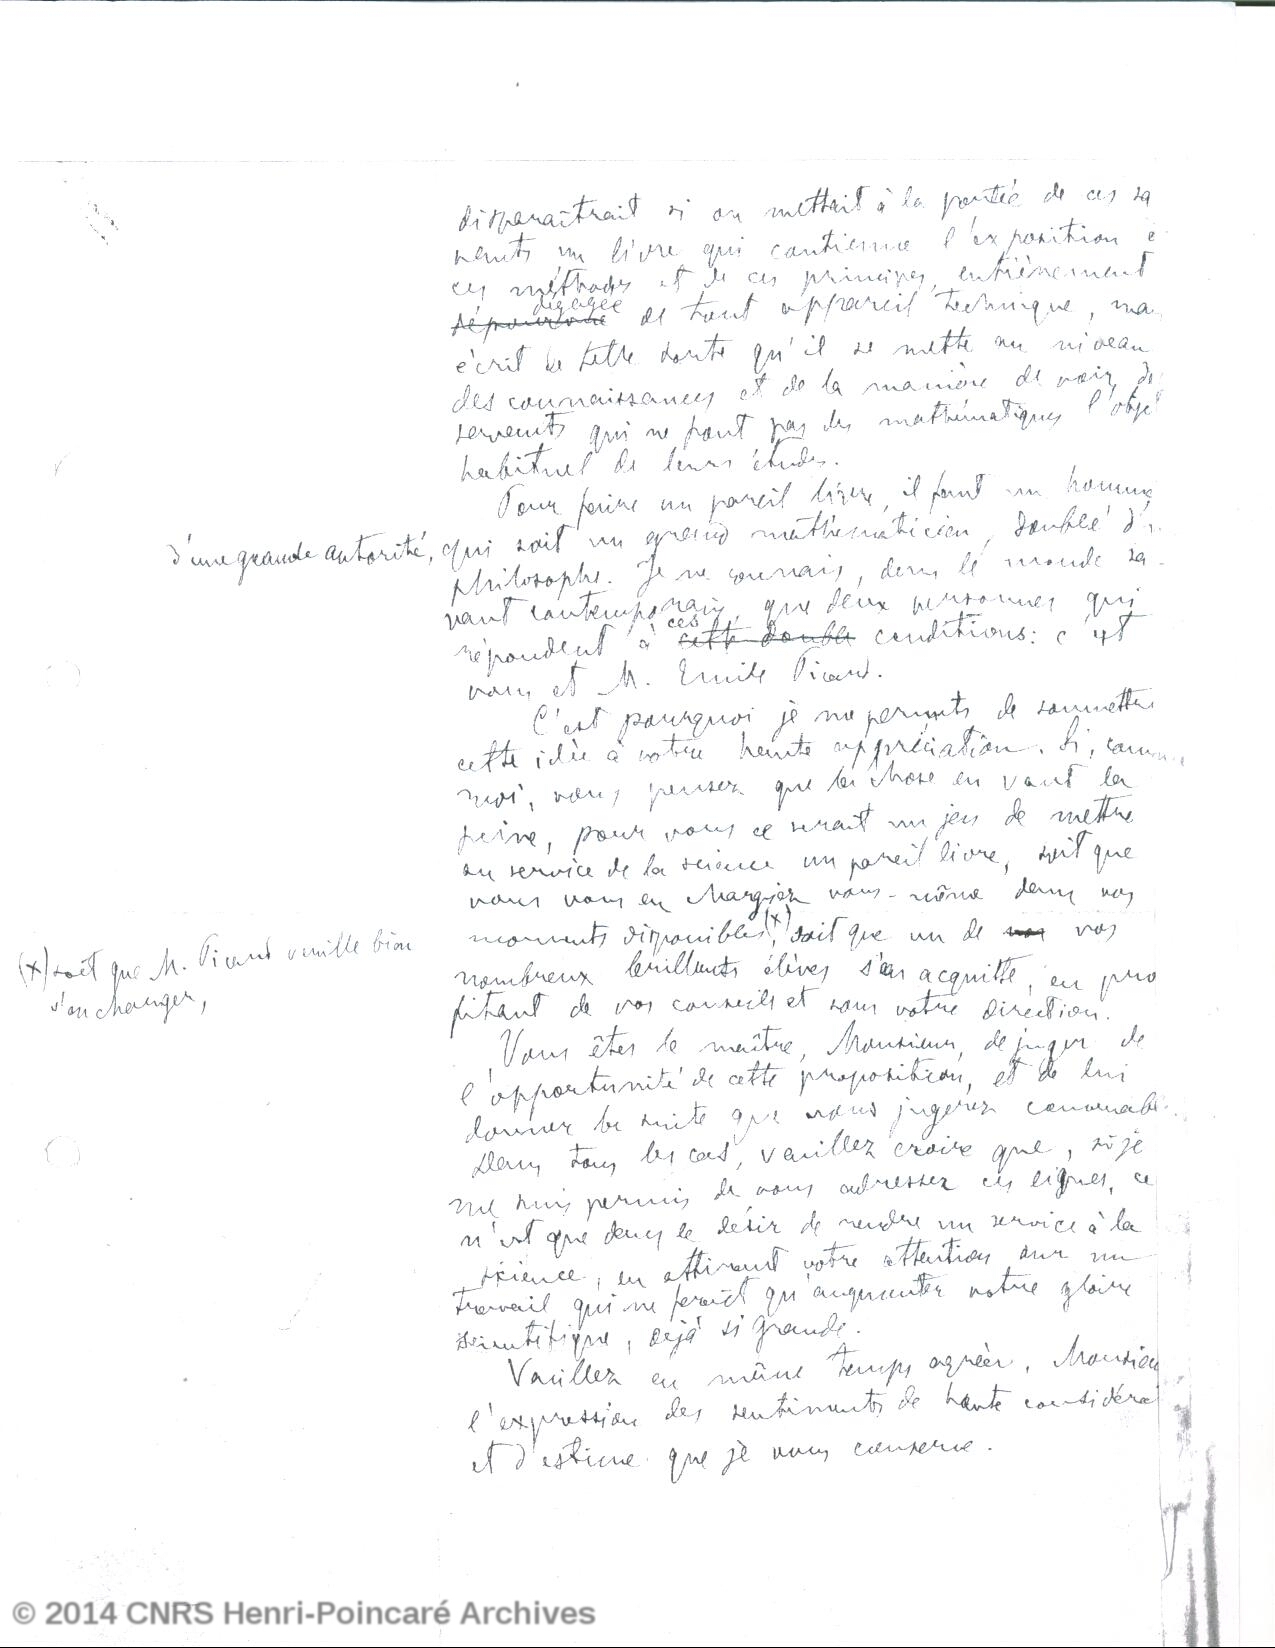 disparaîtrait si on mettait à la portée de ces sa
vants un livre qui contienne l'exposition
ces méthodes et de ces principes, entièrement
dégagée
dépourvue de tout appareil technique, ma
écrit de telle sorte qu'il se mette au niveau
des connaissances et de la manière de voir de
servants qui ne font pas des mathématiques l'obje
habituel de leurs études.
Pour faire un pareil livre, il faut un homme
d'une grande autorité, qui soit un grand mathématicien, doublé d'
philosophe. Je ne connais, dans le monde sa-
vant contemporain, que deux personnes qui
ces
répondent à cette double conditions: c'est
vous et M. Emile Picard.
C'est pourquoi je me permets de soumettre
cette idée à votre haute appréciation. Si, comme
moi, vous pensez que la chose en vaut la
peine, pour vous ce serait un jeu de mettre
au service de la science un pareil livre, soit que
vous vous en chargiez vous-même dans vos
moments disponibles, (x) soit que un de vos
(x) soit que M. Picard veuille bien
s'en charger,
nombreux brillants élèves s'en acquitte, en pro
fitant de vos conseils et sous votre direction.
Vous êtes le maître, Monsieur, de juger de
l'opportunité de cette proposition, et de lui
donner la suite que vous jugerez convenabl
Dans tous les cas, veuillez croire que, si je
me suis permis de vous adresser ces lignes, ce
n'est que dans le désir de rendre un service à la
science, en attirant votre attention sur un
travail qui ne ferait qu'augmenter votre gloire
scientifique, déjà si grande.
Veuillez en même temps agréer, Monsieu
l'expression des sentiments de haute considéra
et d'estime que je vous conserve.
© 2014 CNRS Henri-Poincaré Archives